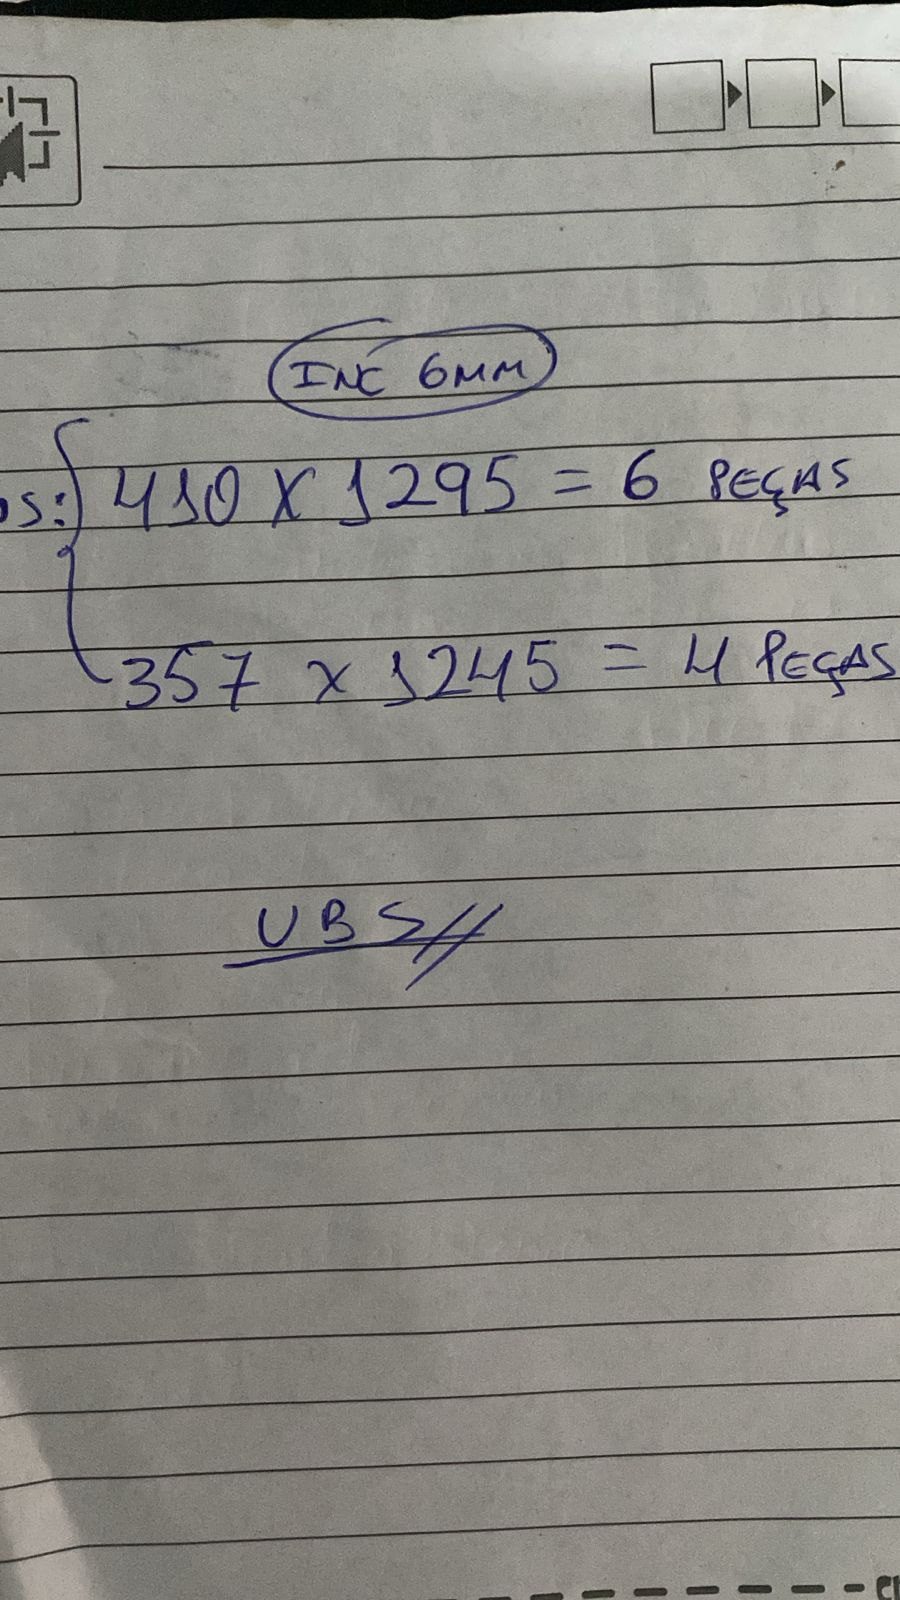 INC 6MM
os: 410 X 1295 = 6 PEÇAS
357 x 1245 = 4 PEÇAS
UBS//